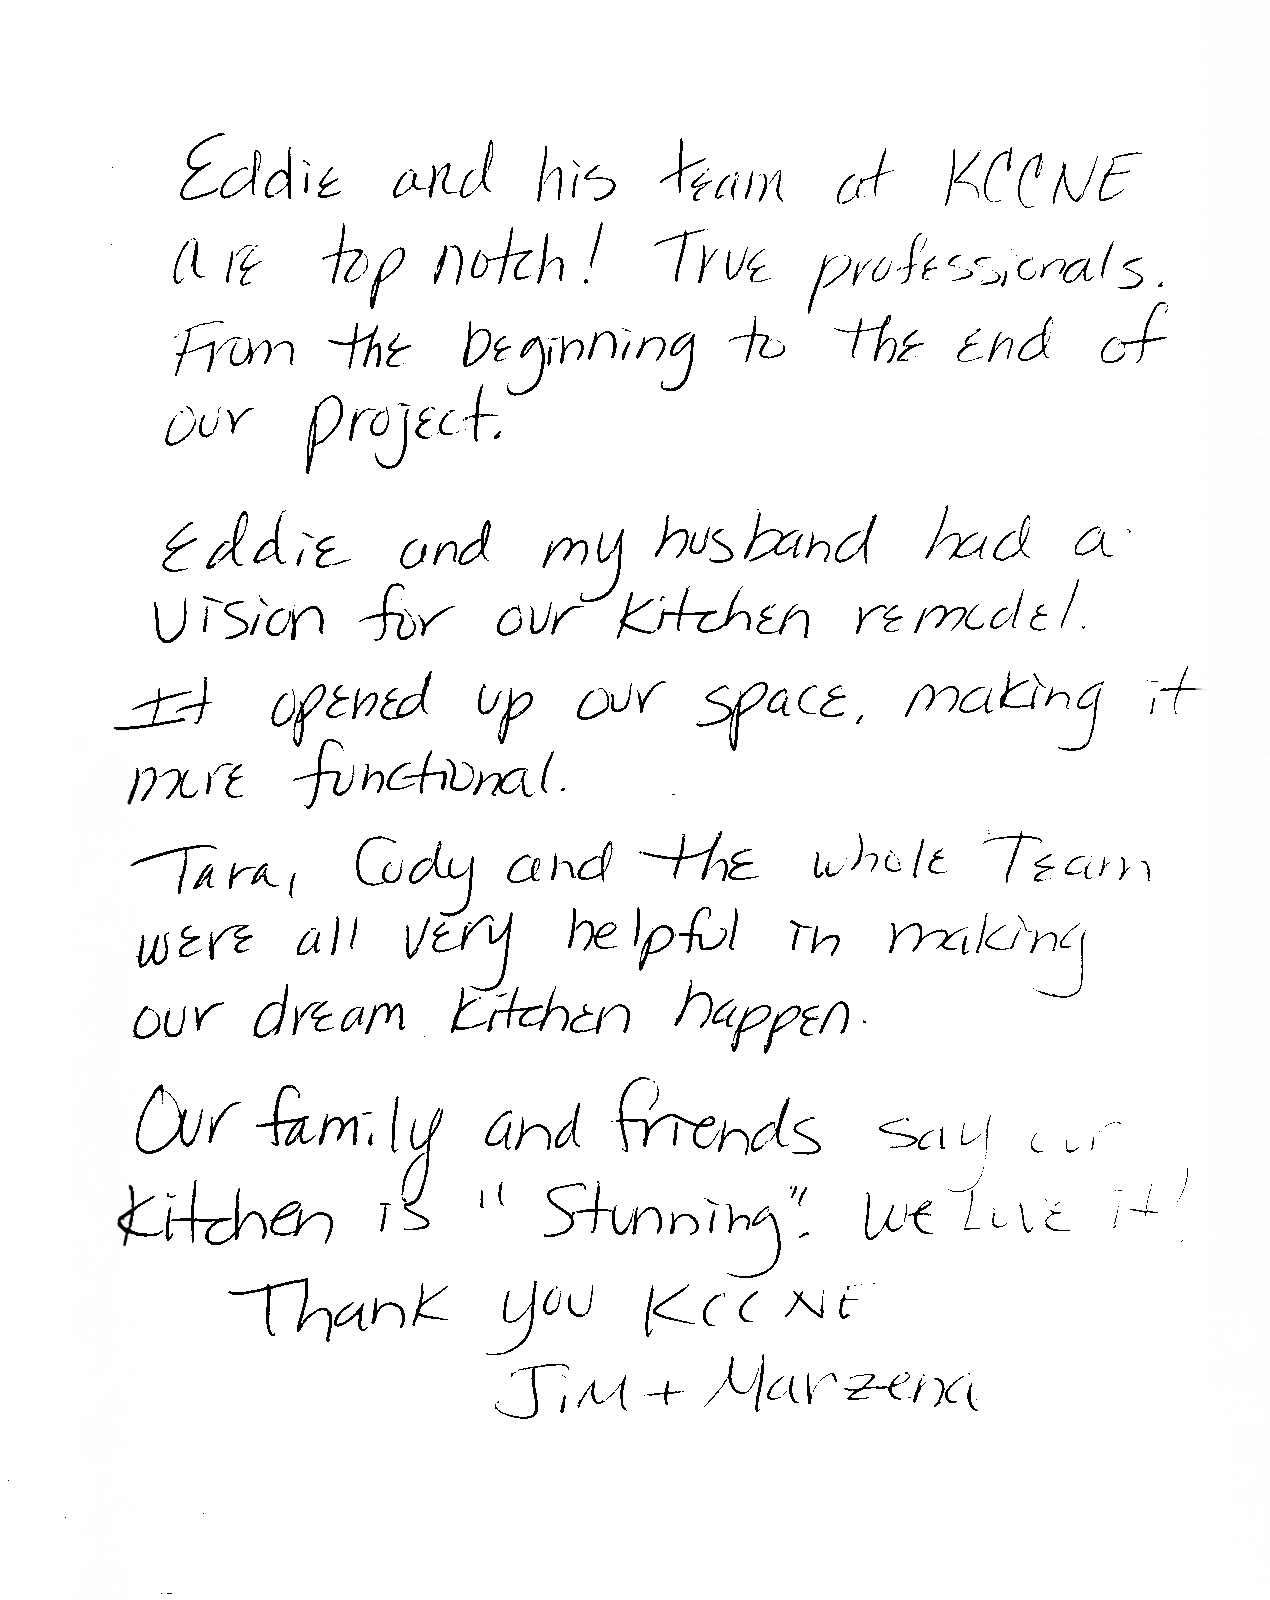 Eddie and his team at KCCNE
are top notch! True professionals.
From the beginning to the end of
our project.
Eddie and my husband had a
vision for our kitchen remodel.
It opened up our space, making it
more functional.
Tara, Cody and the whole Team
were all very helpful in making
our dream kitchen happen.
Our family and friends say our
kitchen is "Stunning". We love it!
Thank you KCCNE
Jim + Marzena